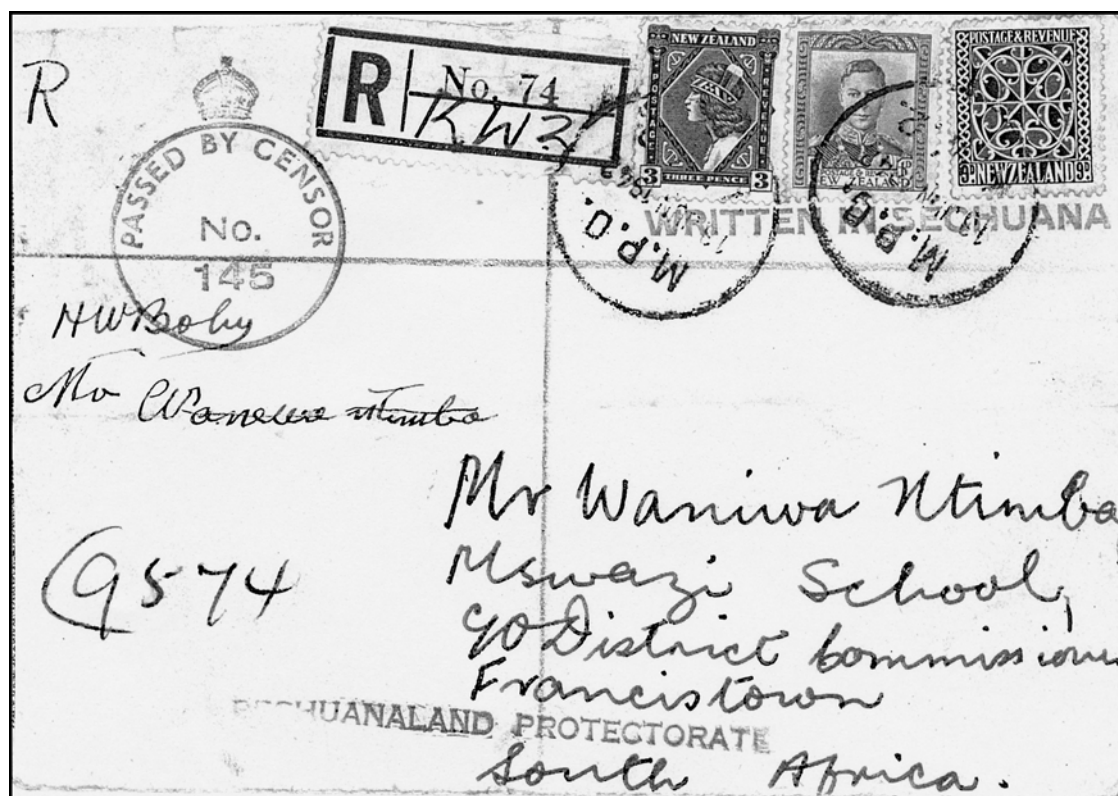 R
PASSED BY CENSOR
No.
145
R No. 74
KW3
NEW ZEALAND
POSTAGE REVENUE
3 THREE PENCE 3
NEW ZEALAND
POSTAGE & REVENUE
9D NEW ZEALAND 9D
M.P.O.
M.P.O.
WRITTEN IN SECHUANA
HWBoby
Mr
Mr Waniwa Ntimba
Mswazi School,
c/o District Commissione
Francistown
BECHUANALAND PROTECTORATE
South Africa.
9574